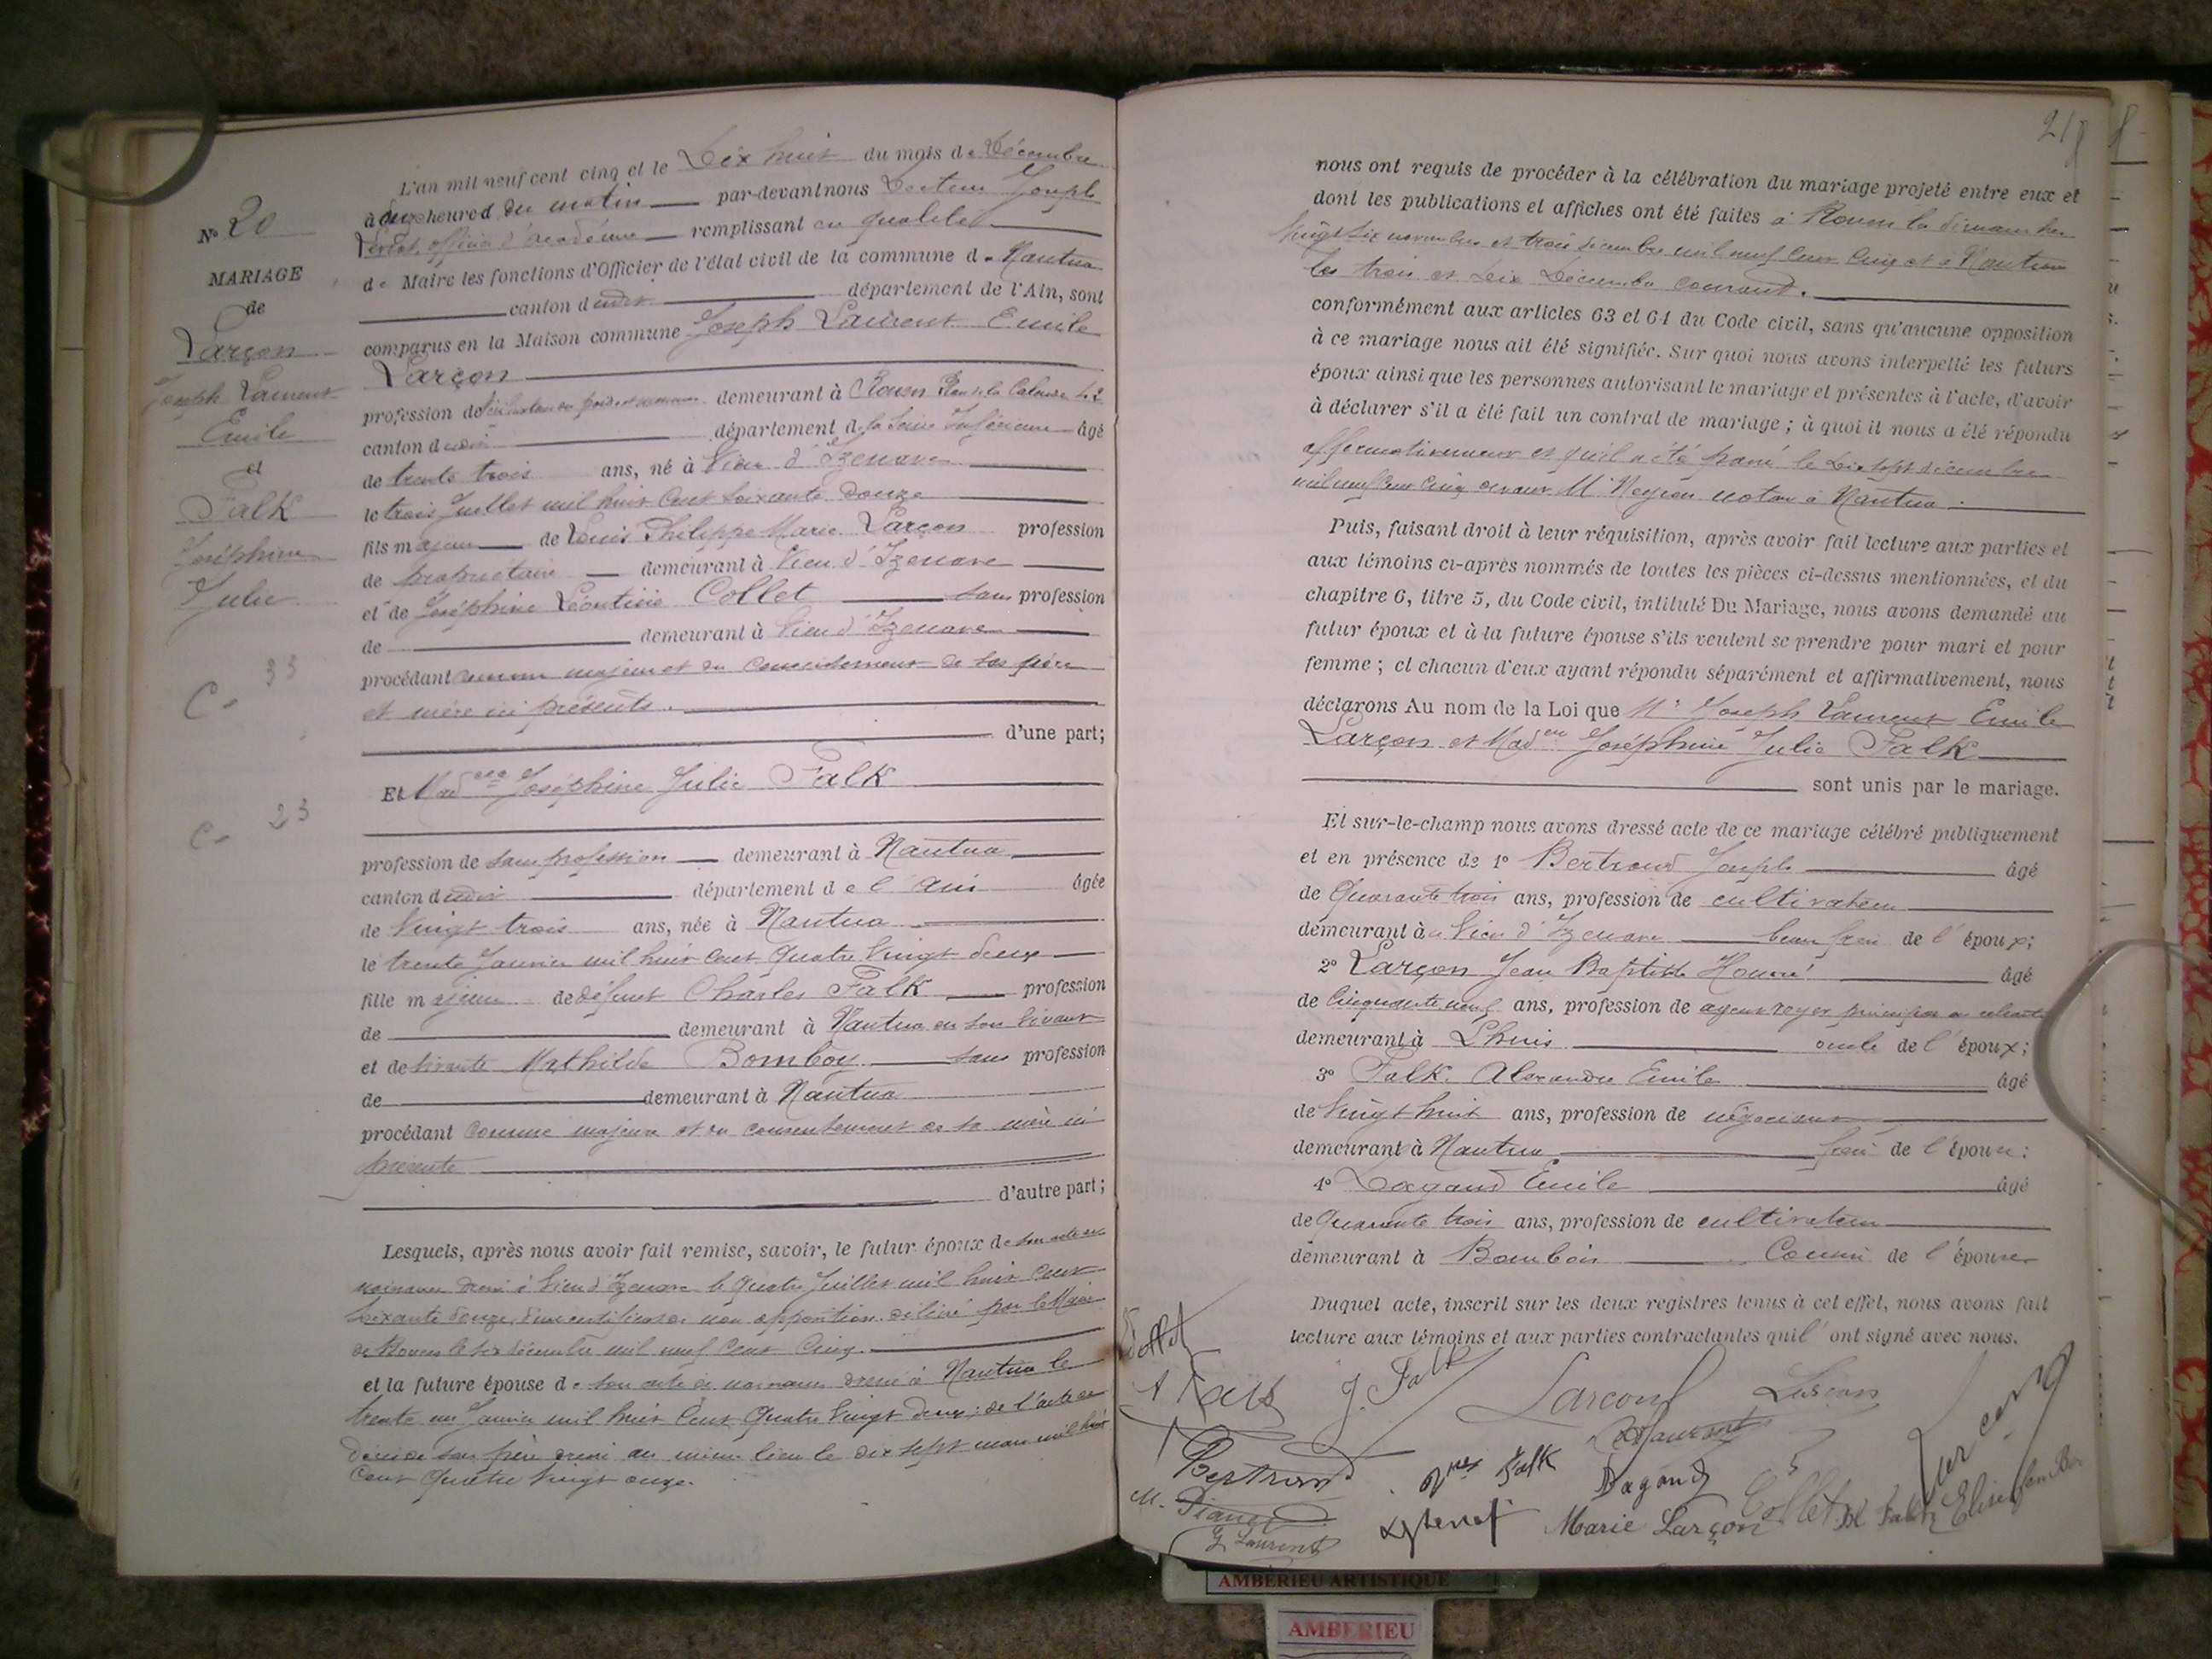 N° 20
MARIAGE
de
Larçon
Joseph Laurent
Emile
et
Falk
Joséphine
Julie
C. 33
C. 23
L'an mil neuf cent cinq et le Dix huit du mois de Décembre
à heures du matin par-devant nous Docteur Joseph
officier d'académie remplissant en qualité
de Maire les fonctions d'Officier de l'état civil de la commune de Nantua
canton dudit département de l'Ain, sont
comparus en la Maison commune Joseph Laurent Emile
Larçon
profession de demeurant à Rouen
canton dudit département de la Seine Inférieure âgé
de trente trois ans, né à Vieu d'Izenave
le trois Juillet mil huit cent soixante douze
fils majeur de Louis Philippe Marie Larçon profession
de propriétaire demeurant à Vieu d'Izenave
et de Joséphine Léontine Collet sans profession
de demeurant à Vieu d'Izenave
procédant comme majeur et du consentement de ses père
et mère ici présents.
d'une part;
Et Mad elle Joséphine Julie Falk
profession de sans profession demeurant à Nantua
canton dudit département de l'Ain âgée
de Vingt trois ans, née à Nantua
le trente Janvier mil huit cent Quatre Vingt deux
fille majeure de défunt Charles Falk profession
de demeurant à Nantua en son vivant
et de vivante Mathilde Bomboy sans profession
de demeurant à Nantua
procédant comme majeure et du consentement de sa mère ici
présente
d'autre part;
Lesquels, après nous avoir fait remise, savoir, le futur époux de son acte de
naissance dressé à Vieu d'Izenave le Quatre Juillet mil huit cent
soixante douze, d'un certificat de non opposition délivré par le Maire
de Rouen le six décembre mil neuf cent cinq.
et la future épouse de son acte de naissance dressé à Nantua le
trente un Janvier mil huit cent Quatre Vingt deux; de l'acte de
décès de son père dressé au même lieu le dix sept mars mil huit
cent Quatre Vingt onze.
218
nous ont requis de procéder à la célébration du mariage projeté entre eux et
dont les publications et affiches ont été faites à Rouen les dimanches
vingt six novembre et trois décembre mil neuf cent cinq et à Nantua
les trois et dix Décembre courant.
conformément aux articles 63 et 64 du Code civil, sans qu'aucune opposition
à ce mariage nous ait été signifiée. Sur quoi nous avons interpellé les futurs
époux ainsi que les personnes autorisant le mariage et présentes à l'acte, d'avoir
à déclarer s'il a été fait un contrat de mariage; à quoi il nous a été répondu
affirmativement et qu'il a été passé le dix sept décembre
mil neuf cent cinq devant Me notaire à Nantua.
Puis, faisant droit à leur réquisition, après avoir fait lecture aux parties et
aux témoins ci-après nommés de toutes les pièces ci-dessus mentionnées, et du
chapitre 6, titre 5, du Code civil, intitulé Du Mariage, nous avons demandé au
futur époux et à la future épouse s'ils veulent se prendre pour mari et pour
femme; et chacun d'eux ayant répondu séparément et affirmativement, nous
déclarons Au nom de la Loi que Mr Joseph Laurent Emile
Larçon et Mad elle Joséphine Julie Falk
sont unis par le mariage.
Et sur-le-champ nous avons dressé acte de ce mariage célébré publiquement
et en présence de 1° Bertrand Joseph âgé
de Quarante trois ans, profession de cultivateur
demeurant à Vieu d'Izenave beau frère de l'époux;
2° Larçon Jean Baptiste Honoré âgé
de Cinquante neuf ans, profession de agent voyer principal en retraite
demeurant à Lhuis oncle de l'époux;
3° Falk Alexandre Emile âgé
de Vingt huit ans, profession de négociant
demeurant à Nantua frère de l'épouse;
4° Dagand Emile âgé
de Quarante trois ans, profession de cultivateur
demeurant à Bombois Cousin de l'épouse
Duquel acte, inscrit sur les deux registres tenus à cet effet, nous avons fait
lecture aux témoins et aux parties contractantes qui l'ont signé avec nous.
J. Falk
Larçon
Larçon
Bertrand
Falk
Dagand
Marie Larçon
Collet
AMBERIEU ARTISTIQUE
AMBERIEU